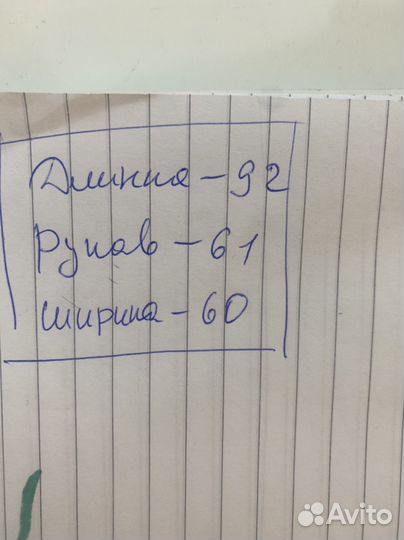 Длинна - 92
Рукав - 61
Ширина - 60
Avito